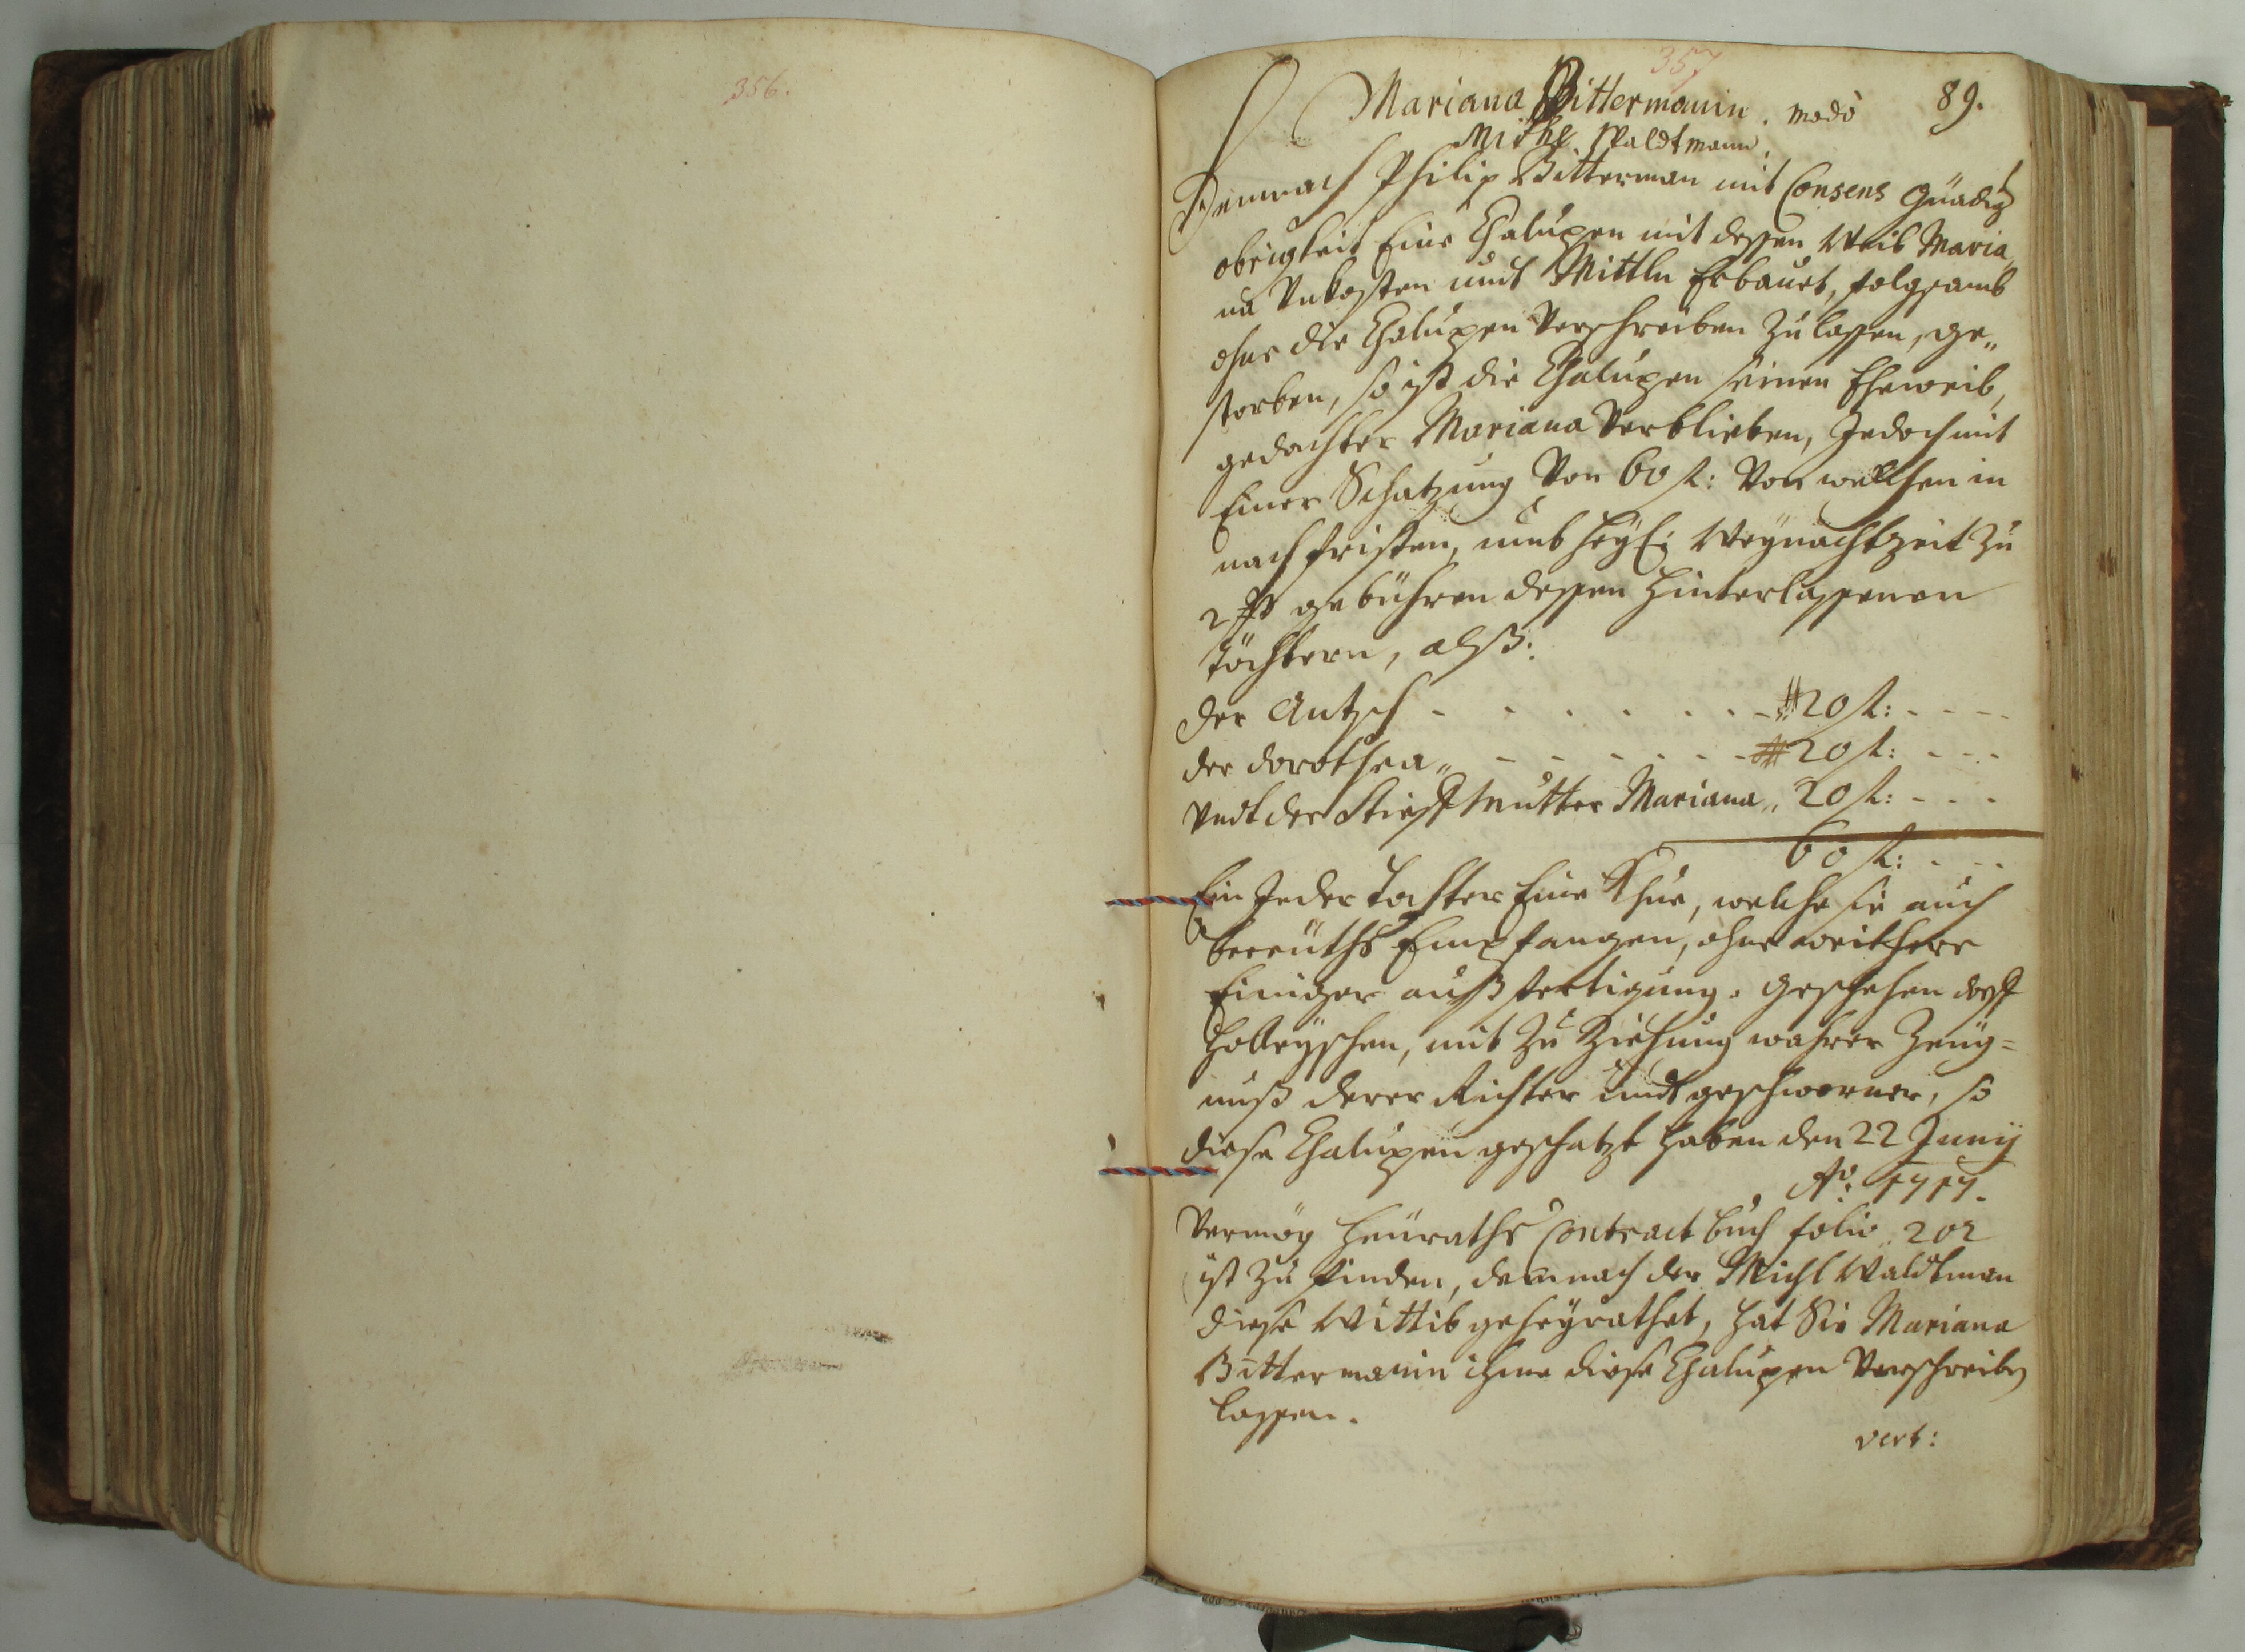 356.
357
89.
Mariana Bittermanin. modò
Mich: Waldtmann.
Demnach Philip Bitterman mit Consens gnädig
obrigkeit Eine Chalupen mit dessen Weib Maria
na Unkosten undt Mittln Erbauet, folgsamb
ohne die Chalupen Verschreiben zu lassen, ge„
storben, so ist die Chalupen seinen Eheweib,
gedachter Mariana Verblieben, Jedoch mit
Einer Schatzung Von 60 fl: Von welchen in
nachfristen, umb heyl: Weynachtzeit zu
2 ß gebühren dessen hinterlassenen
Töchtern, alß:
der Antsch - - - - - - - # 20 fl: - - - -
der dorothea„ - - - - - - # 20 fl: - - -
Undt der Stieffmutter Mariana„ 20 fl: - - -
60 fl: - - -
Ein Jeder Tochter Eine Khue, welche sie auch
bereüths Empfangen, ohne weithere
Einiger außfertigung. Geschehen dorff
Holleyschen, mit Zu Ziehung wahrer Zeug=
nuß derer Richter undt geschworner, so
diese Chalupen geschatzt haben den 22 Junij
Ao: 1717.
Vermög Heuraths Contract buch folio 202
ist zu finden, demnach der Michl Waldtman
diese Wittib geheyrathet, hat Sie Mariana
Bittermanin ihme diese Chalupen Verschreiben
lassen.
vert: